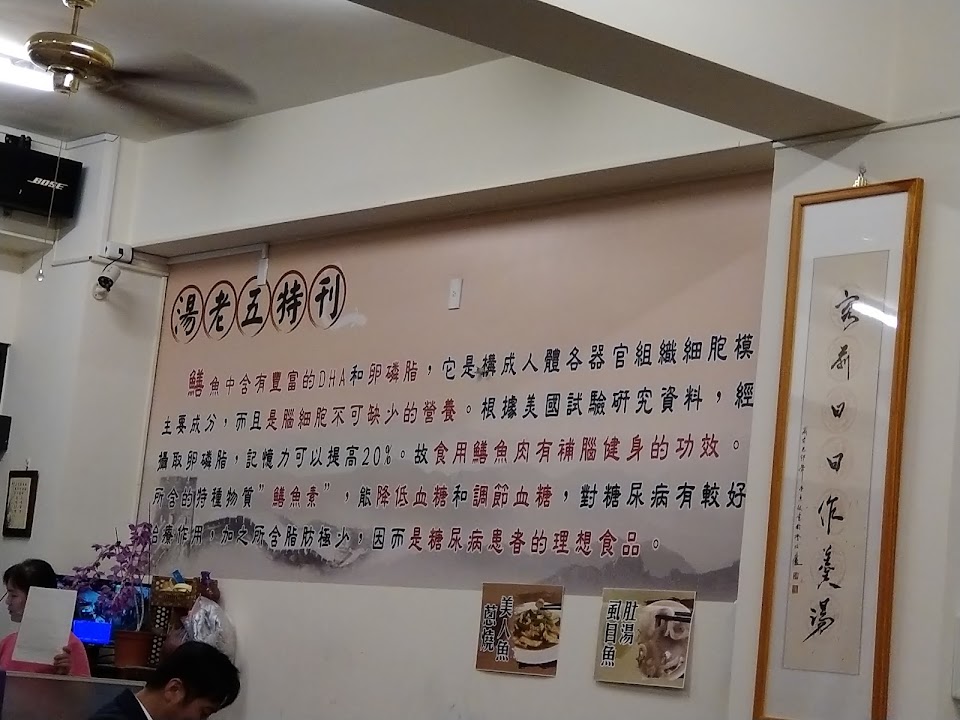 BOSE
湯老五特刊
鱔魚中含有豐富的DHA和卵磷脂，它是構成人體各器官組織細胞模
主要成分，而且是腦細胞不可缺少的營養。根據美國試驗研究資料，經
攝取卵磷脂，記憶力可以提高20%。故食用鱔魚肉有補腦健身的功效。
所含的特種物質"鱔魚素"，能降低血糖和調節血糖，對糖尿病有較好
治療作用，加之所含脂肪極少，因而是糖尿病患者的理想食品。
美人魚
蔥燒
肚湯
虱目魚
日日作羹湯